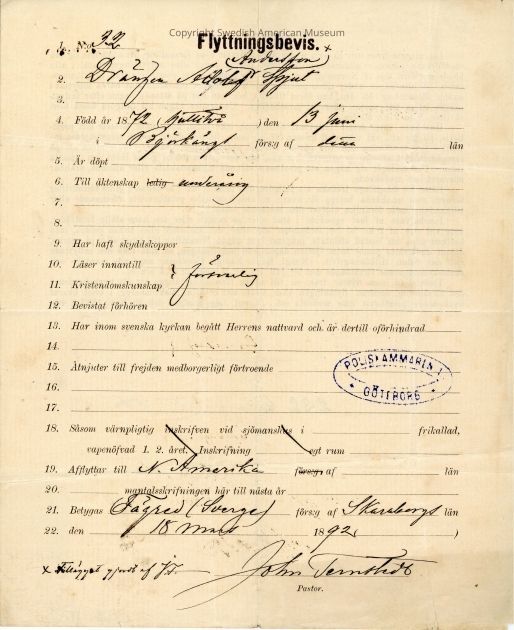 Copyright Swedish American Museum
1. N:o 32 Flyttningsbevis. x
(Andersson)
2. Drängen Adolf Hjut
3.
4. Född år 1872 (sjuttitvå) den 13 juni
i försg af detta län
5. Är döpt
6. Till äktenskap ledig underårig
7.
8.
9. Har haft skyddskoppor
10. Läser innantill
försvarlig
11. Kristendomskunskap
12. Bevistat förhören
13. Har inom svenska kyrkan begått Herrens nattvard och är dertill oförhindrad
14.
15. Åtnjuter till frejden medborgerligt förtroende
POLISKAMMAREN I
GÖTEBORG
16.
17.
18. Såsom värnpligtig inskrifven vid sjömanshus i frikallad,
vapenöfvad 1. 2. året. Inskrifning egt rum
19. Afflyttar till N. Amerika försg af län
20. mantalsskrifningen här till nästa år
21. Betygas Fägred (Sverge) försg af Skaraborgs län
22. den 18 mars 1892 )
x Tillägget gjordt af J.T. John Ternstedt
Pastor.